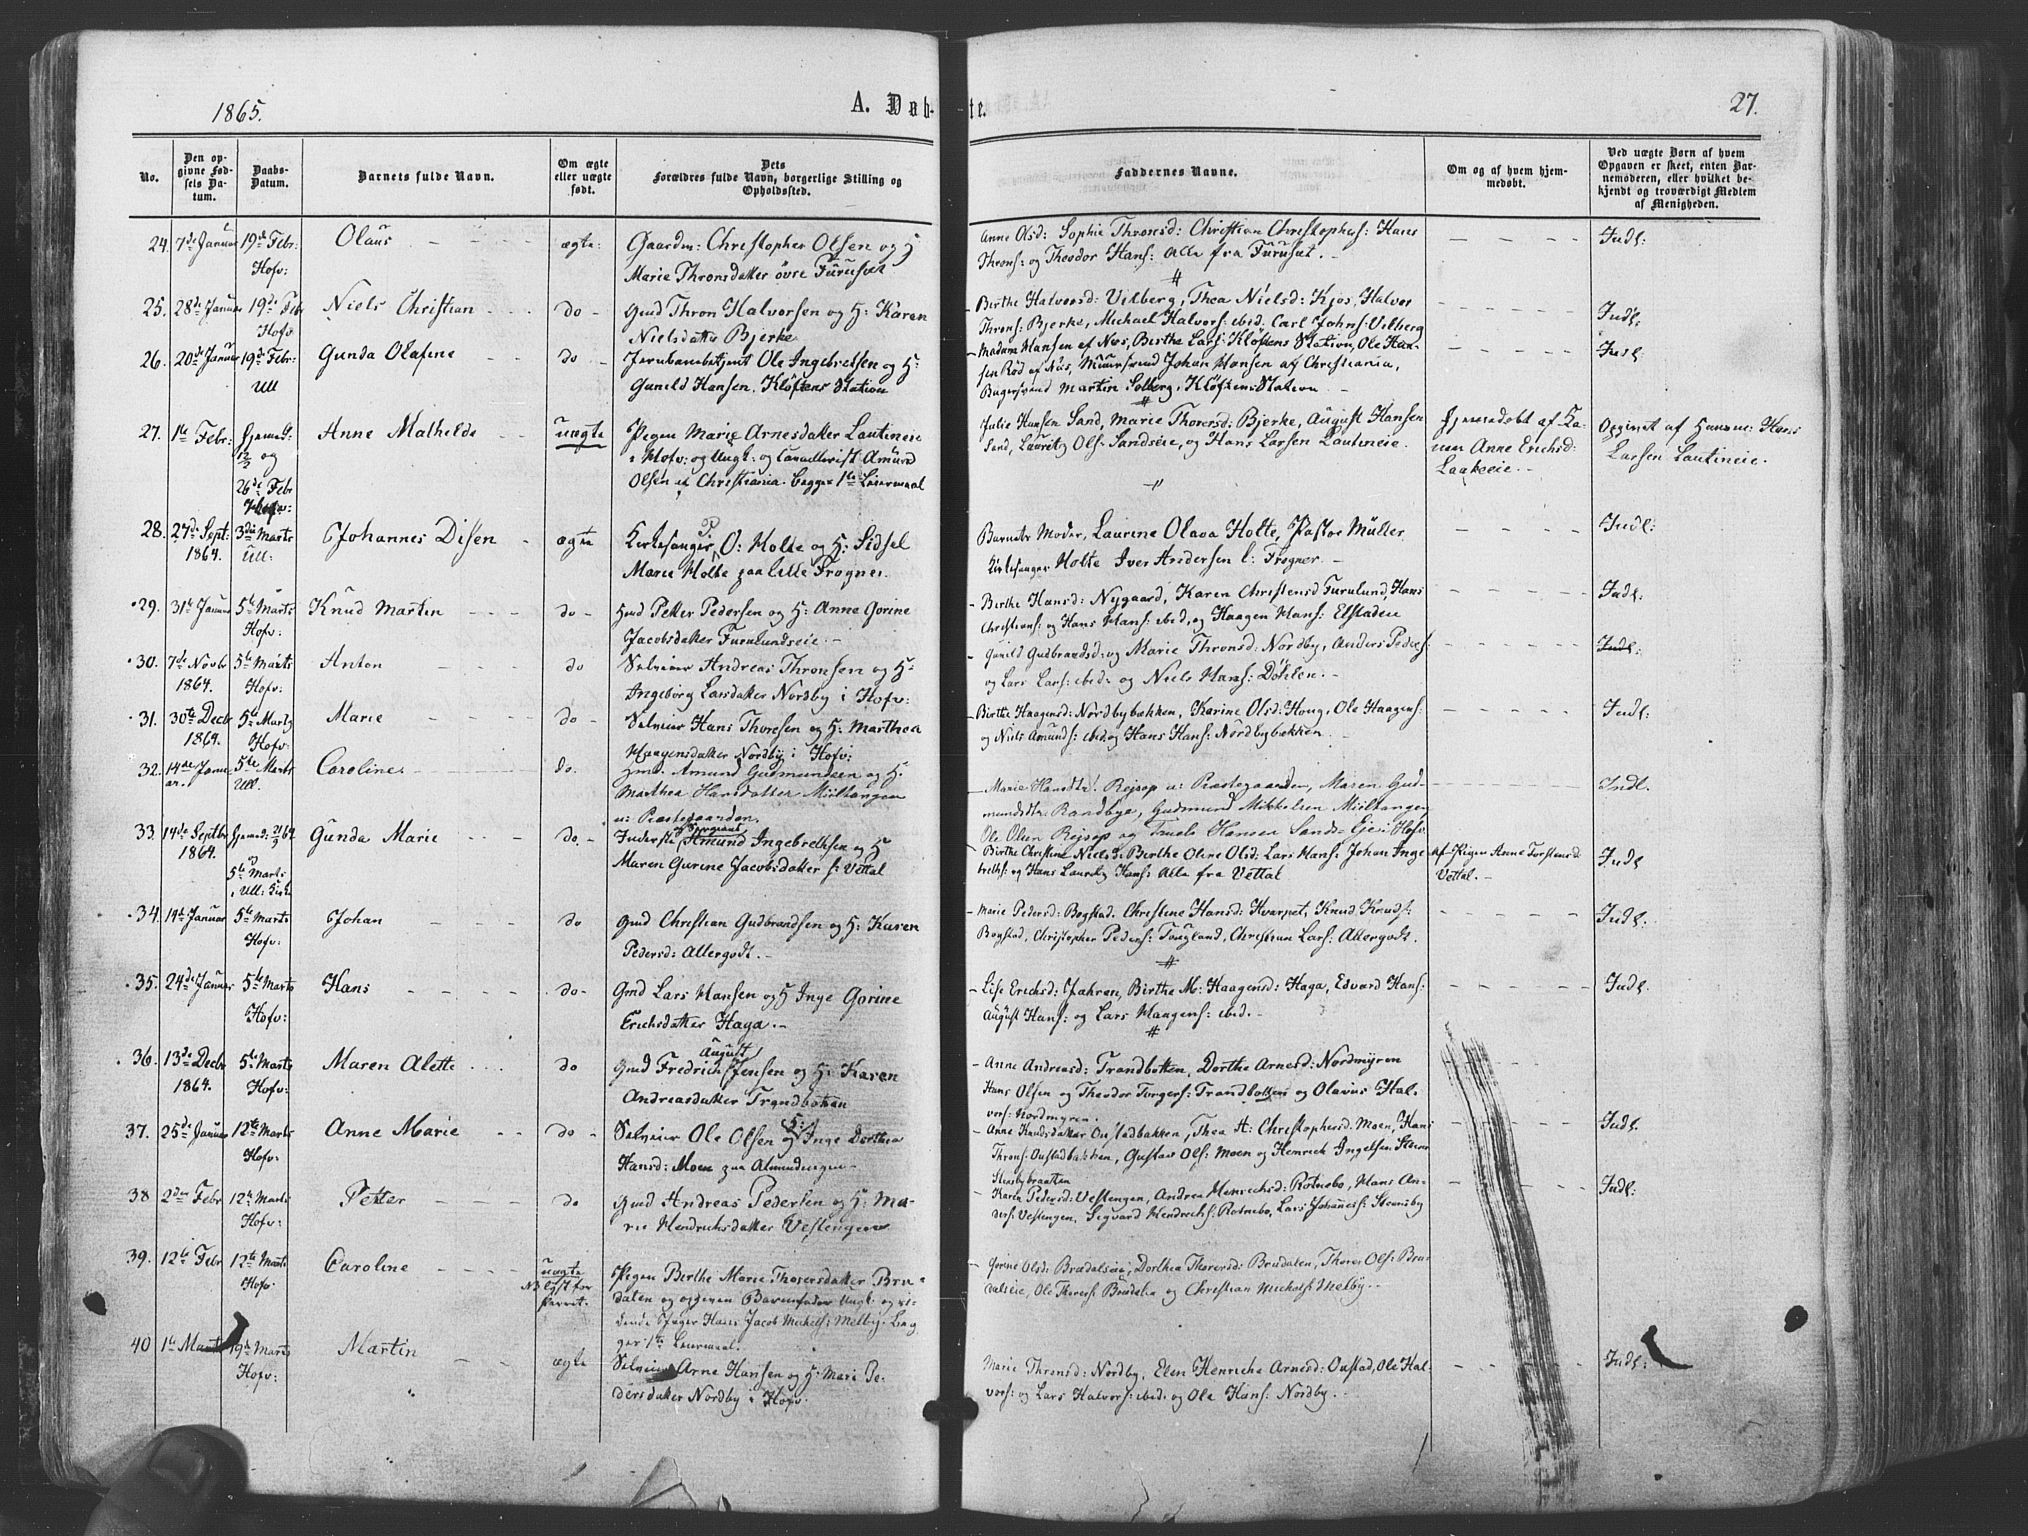 1865.
A. Døb-
te.
27.
No.
Den op-
givne Fød-
sels Da-
tum.
Daabs-
Datum.
Barnets fulde Navn.
Om ægte
eller uægte
født.
Dets
Forældres fulde Navn, borgerlige Stilling og
Opholdssted.
Faddernes Navne.
Om og af hvem hjem-
medøbt.
Ved uægte Børn af hvem
Opgaven er skeet, enten Bar-
nemoderen, eller hvilket be-
kjendt og troværdigt Medlem
af Menigheden.
24. 7de Januar 19de Febr: Olaus ægte: Gaardm: Christopher Olsen og H
Hofv: Marie Thronsdatter øvre Furuset
Anne Olsd: Sophie Thronsd: Christian Christophers: Hans
Throns: og Theodor Hans: Alle fra Furuset. Indl:
25. 28de Januar 19de Feb Niels Christian do Gmd Thron Halvorsen og H: Karen
Hofv Nielsdatter Bjerke
Birthe Halvorsd: Vilberg, Thea Nielsd: Kjos, Halvor
Throns: Bjerke, Michael Halvors: ibid: Carl Johns: Vilberg Indl:
26. 20de Januar 19de Febr: Gunda Olafine do Jernbanebetjent Ole Ingebretsen og H:
Ull Gunild Hansen. Kløftens Station
Madam Hansen af Næs, Birthe Lars: Kløftens Station, Ole Han-
sen Rød af Næs, Muursvend Johan Hansen af Christiania,
Bagersvend Martin Solberg, Kløftens Station Indl:
27. 1te Febr: Hjemmed: Anne Mathilde uægte Pigen Marie Arnesdatter Lautineie
og i Hofv: og Ungk: og Amund
26de Febr Olsen af Christiania. begges 1te Leiermaal
Hofv:
Julie Hansen Sand, Marie Thoresd: Bjerke, August Hansen
Sand, Lauritz Ols: Sandseie, og Hans Larsen Lautineie.
Hjemmedøbt af Ko-
nen Anne Erichsd:
Laakeeie.
Opgivet af Hans
Larsen Lautineie.
28. 27de Sept: 3die Marts Johannes Disen ægte Kirkesanger O: P Holte og H: Sidsel
1864. Ull: Marie Holte paa lille Frogner.
Barnets Moder, Laurine Olava Holte, Pastor Müller,
Kirkesanger Holte Iver Andersen l: Frogner Indl:
29. 31te Januar 5te Marts Knud Martin do Gmd Petter Pedersen og H: Anne Gorine
Hofv: Jacobsdatter Furulundseie.
Birthe Hansd: Nygaard, Karen Christensd Furulund, Hans
Christians: og Hans Hans: ibid, og Haagen Hans: Elstaden Indl:
30. 7de Novbr 5te Marts Anton do Selveier Andreas Thronsen og H:
1864. Hofv: Ingeborg Larsdatter Nordby i Hofv:
Gunild Gudbrandsd: og Marie Thronsd: Nordby, Anders Peders:
og Lars Lars: ibid: og Niels Hans: Døhlen. Indl:
31. 30te Decbr 5te Marts Marie do Selveier Hans Thoresen og H: Marthea
1864. Hofv: Haagensdatter Nordby i Hofv:
Birthe Haagensd: Nordbybækken, Karine Olsd: Houg, Ole Haagens:
og Niels Amunds: ibid, og Hans Hans: Nordbybækken. Indl:
32. 14de Janu- 5te Marts Caroline do. Gmd. Amund Gudmundsen og H.
ar. Ull. Marthea Hansdatter Miltangen
u: Præstegaarden.
Marie Hansdtr: Rejsop u: Præstegaarden, Maren Gud-
mundsdtr: Randbye, Gudmund Mikkelsen Miltangen
Ole Olsen Rejsop og Truels Hansen Sands-Eje i Hofv. Indl.
33. 14de Septbr Hjemmed: Gunda Marie do. Inderste Amund Ingebrethsen og H
1864. Maren Gurine Jacobsdatter s: Vettal
5te Marts
i Ull: Kirke
Birthe Christine Niels: Birthe Oline Olsd: Lars Hans: Johan Inge
breths: og Hans Lauritz Hans: Alle fra Vettal
Af Pigen Anne Torstensd
Vettal. Indl
34. 14de Januar 5te Marts Johan do Gmd Christian Gudbrandsen og H: Karen
Hofv: Pedersd: Allergodt.
Marie Pedersd: Bogstad. Christine Hansd: Hvarpet, Knud Knuds:
Bogstad, Christopher Peders: Tougland, Christian Lars: Allergodt. Indl:
35. 24de Januar 5te Marts Hans do Gmd Lars Hansen og H Inge Gorine
Hofv: Erichsdatter Haga.
Lise Erichsd: Jahren, Birthe M: Haagensd: Haga, Edvard Hans:
August Hans: og Lars Haagens: ibid. Indl.
36. 13de Decbr 5te Marts Maren Alette do Gmd Fredrich August Jensen og H: Karen
1864. Hofv: Andreasdatter Trandbotten
Anne Andreasd: Trandbotten, Dorthe Arnesd: Nordmyren
Hans Olsen og Theodor Torgers: Trandbotten og Olavus Hal-
vors: Nordmyren.
37. 25de Januar 12te Marts Anne Marie do Selveier Ole Olsen og H: Inge Dorthea
Hofv: Hansd: Moen paa Almundingen
Anne Knudsdatter Oustadbakken, Thea A: Christophersd: Moen, Hans
Throns: Oustadbakken, Gustav Ols: Moen og Henrich Ingelsen
Stensbybraatten Indl.
38 2den Febr 12te Marts Petter do Gmd Andreas Pedersen og H: Ma-
Hofv: rie Hendrichsdatter Vestengen
Karen Pedersd: Vestengen, Andrea Henrichsd: Rotnebo, Hans An-
ders: Vestengen, Sigvard Hendrichs: Rotnebo, Lars Johanes: Steensby Indl:
39. 12te Febr 12te Marts Caroline uægte Pigen Berthe Marie Thoresdatter Bru-
Hofv daten og opgiven Barnefader Ungk: og
Hans Jacob Michels: Melby. Beg-
ges 1te Leiermaal.
Gorine Olsd: Brudalseie, Dorthea Thoresd: Brudalen, Thorer Ols: Bru-
dalseie, Ole Thorers: Brudalen og Christian Michels: Melby.
40 1te Marts 19de Marts Martin ægte Selveier Arne Hansen og H: Mari Pe-
Hofv: dersdatter Nordby i Hofv.
Marie Thronsd: Nordby, Elen Henriche Arnesd: Oustad, Ole Hal-
vors: og Lars Halvors: ibid. og Ole Hans: Nordby. Indl: